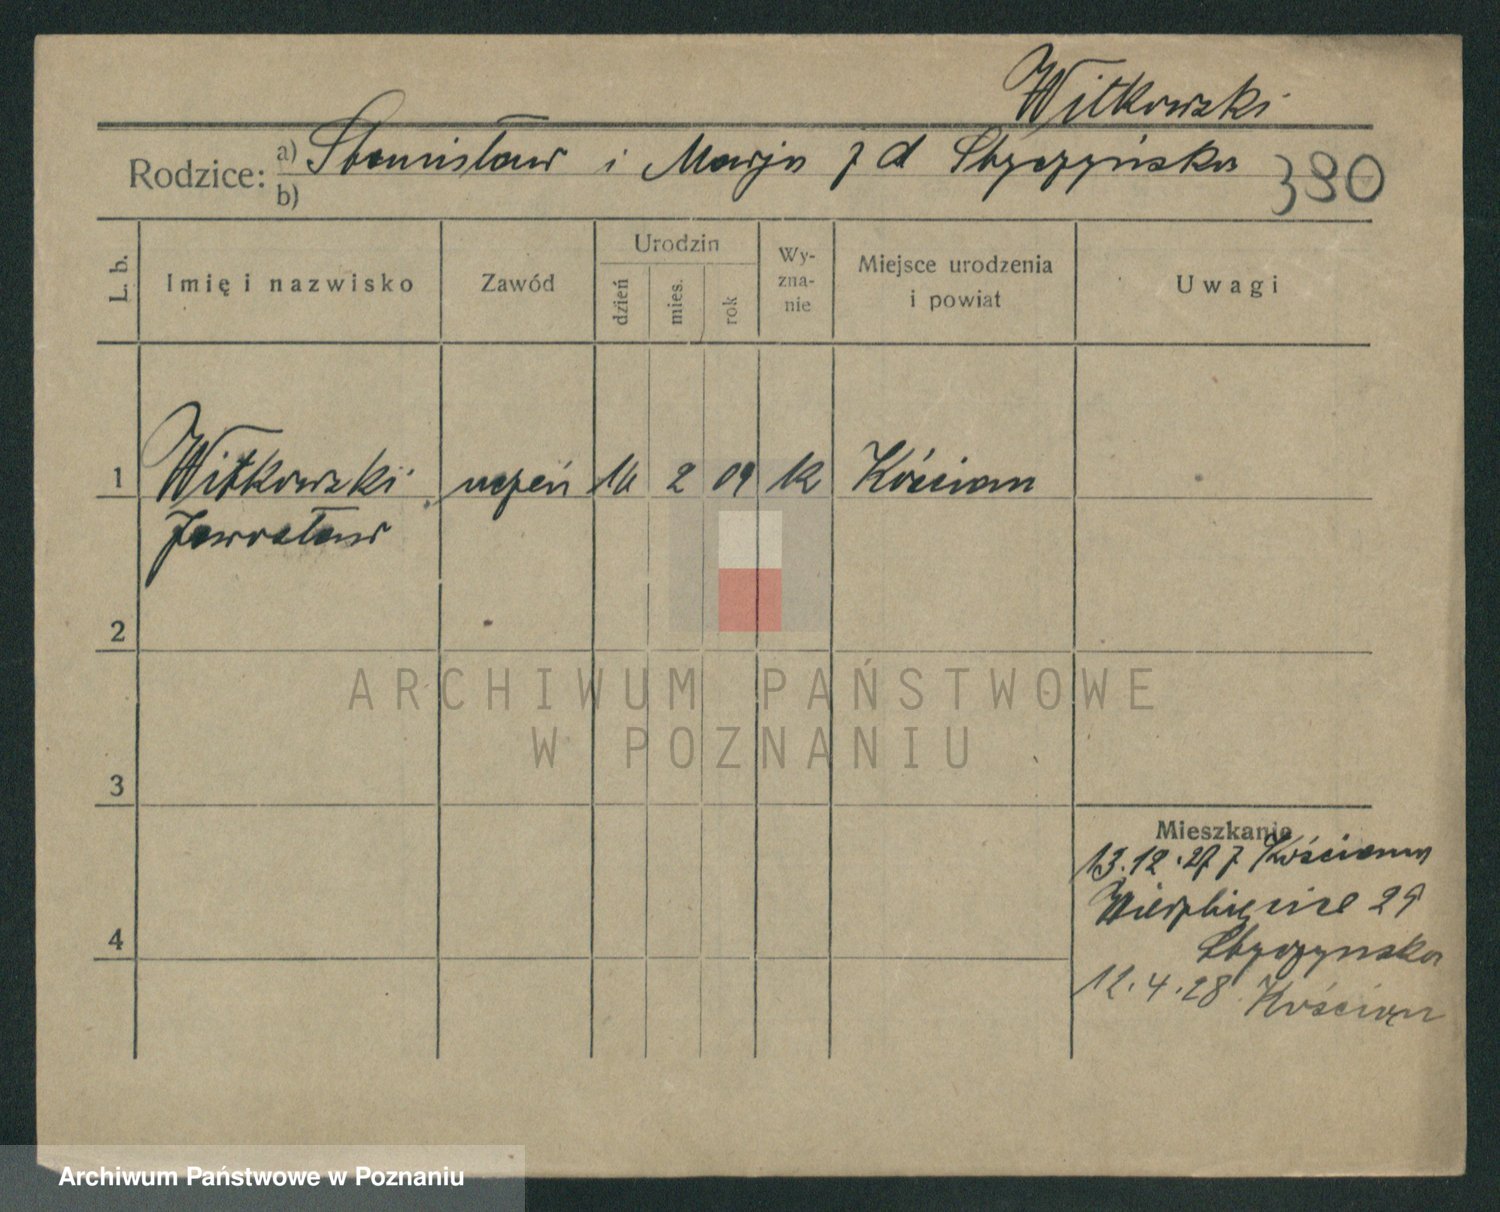 Witkowski
Rodzice: a) Stanisław i Marja z d Stryczyńska 390
b)
L. b. Imię i nazwisko Zawód Urodzin dzień mies. rok Wy-zna-nie Miejsce urodzenia i powiat Uwagi
1 Witkowski uczeń 2 09 k Kościan
Jarosław
2
3
4
Mieszkanie
13.12.27 z Kościana
Wierzbięcice
12.4.28 Kościan
ARCHIWUM PAŃSTWOWE
W POZNANIU
Archiwum Państwowe w Poznaniu